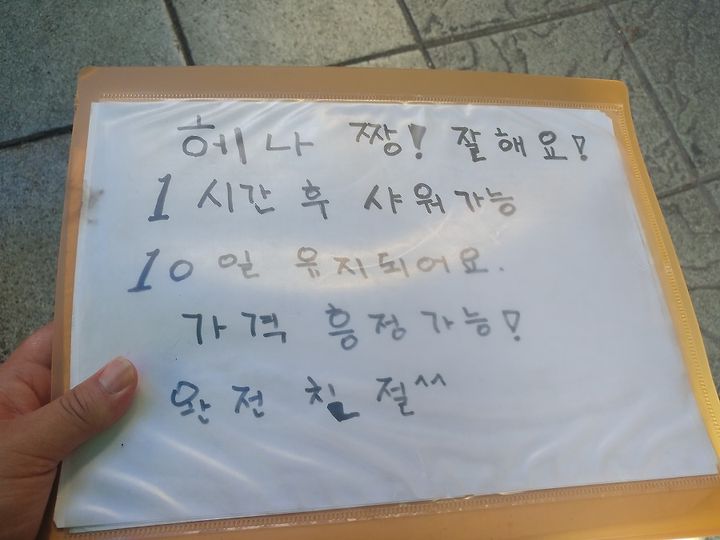 헤나 짱! 잘해요!
1 시간 후 샤워가능
10일 유지되어요.
가격 흥정가능!
완전 친절^^